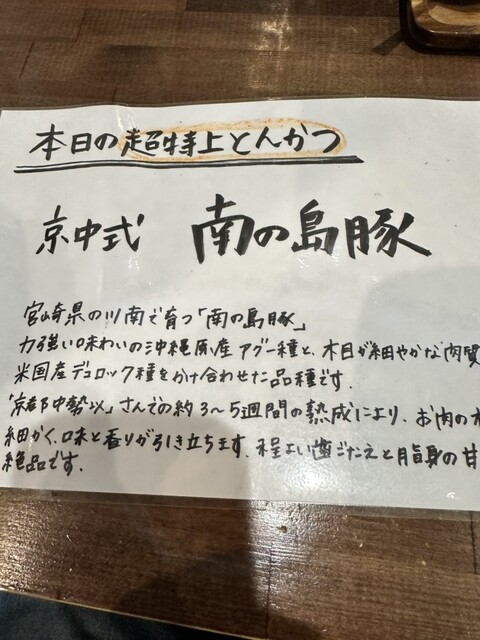 本日の超特上とんかつ
京中式 南の島豚
宮崎県の川南で育つ「南の島豚」
力強い味わいの沖縄原産アグー種と、木目が細やかな肉質
米国産デュロック種をかけ合わせた品種です.
「京都中勢以」さんでの約3〜5週間の熟成により、お肉の木
細かく、味と香りが引き立ちます. 程よい歯ごたえと脂身の甘
絶品です.